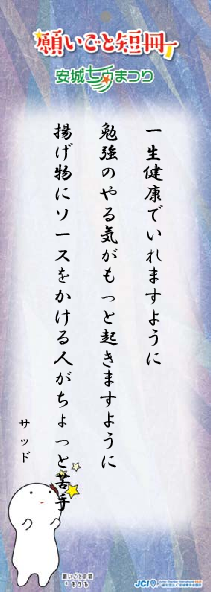 願いごと短冊
安城七夕まつり
一生健康でいれますように
勉強のやる気がもっと起きますように
揚げ物にソースをかける人がちょっと苦手
サッド
JCI